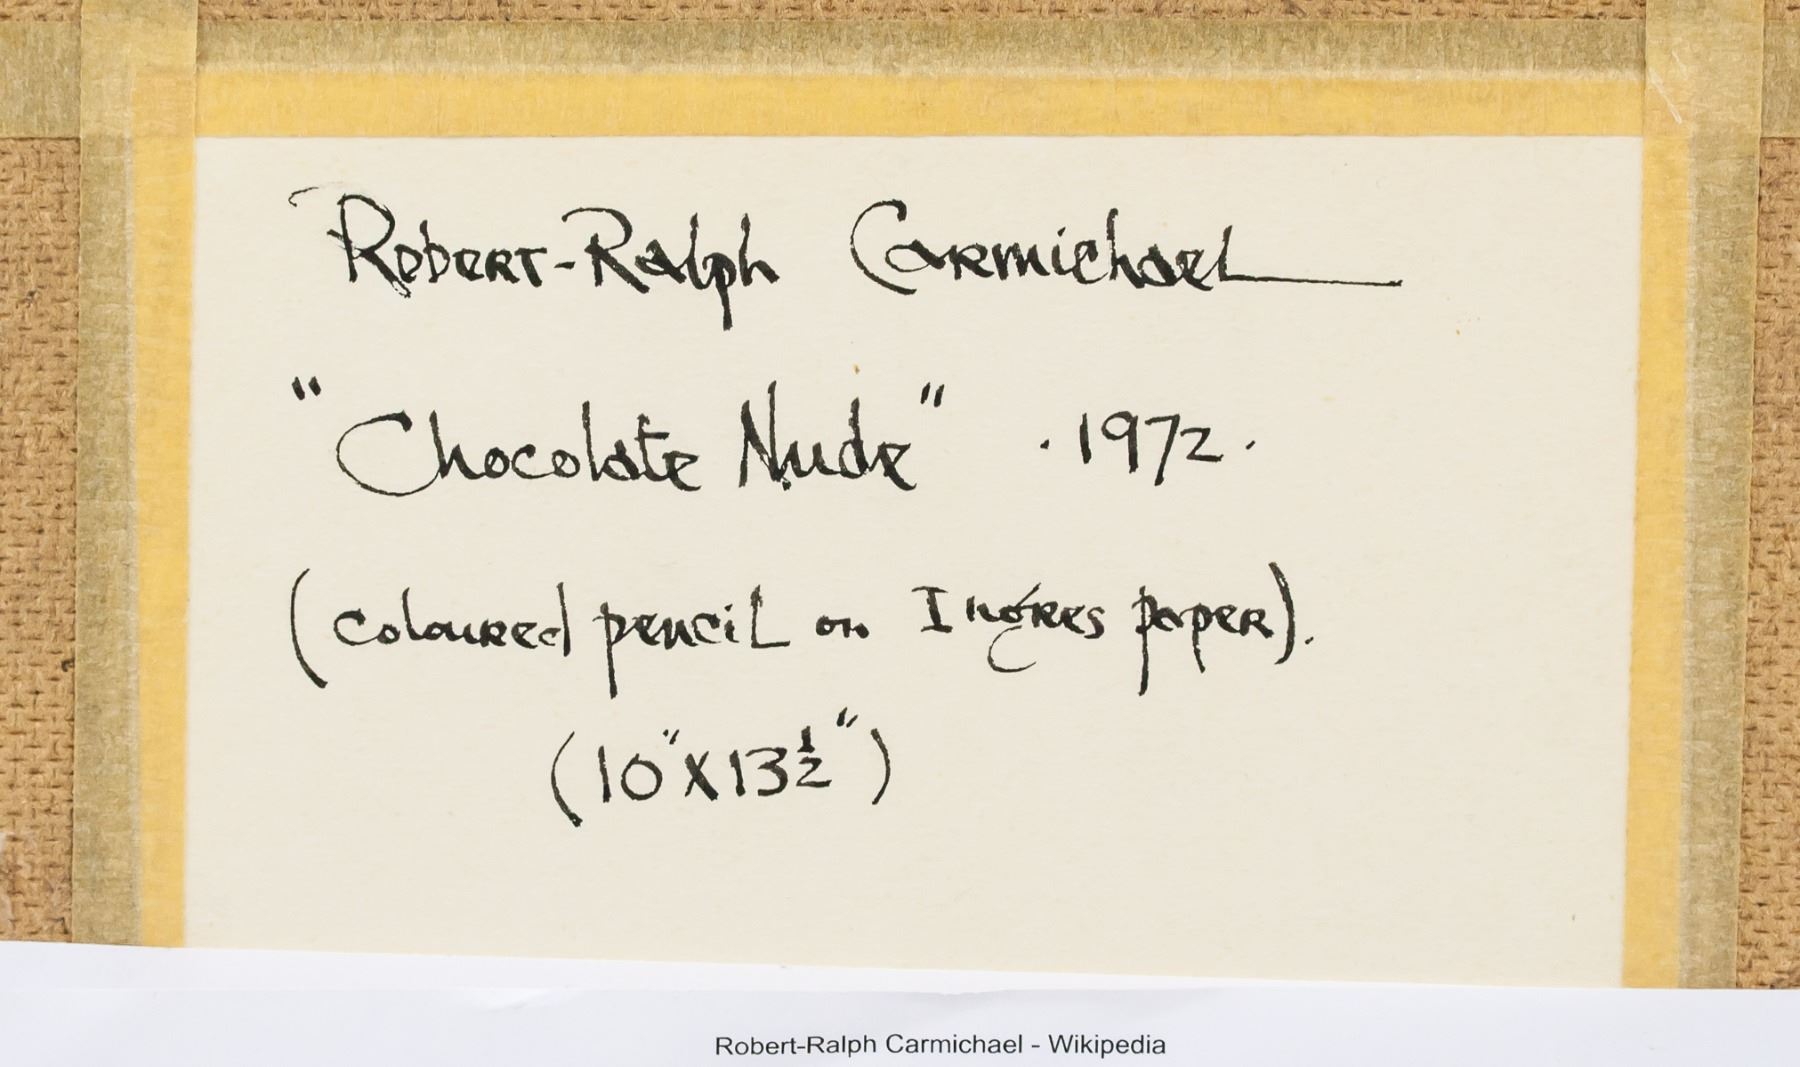 Robert-Ralph Carmichael
"Chocolate Nude" · 1972 ·
(coloured pencil on Ingres paper).
(10"x13½")
Robert-Ralph Carmichael - Wikipedia